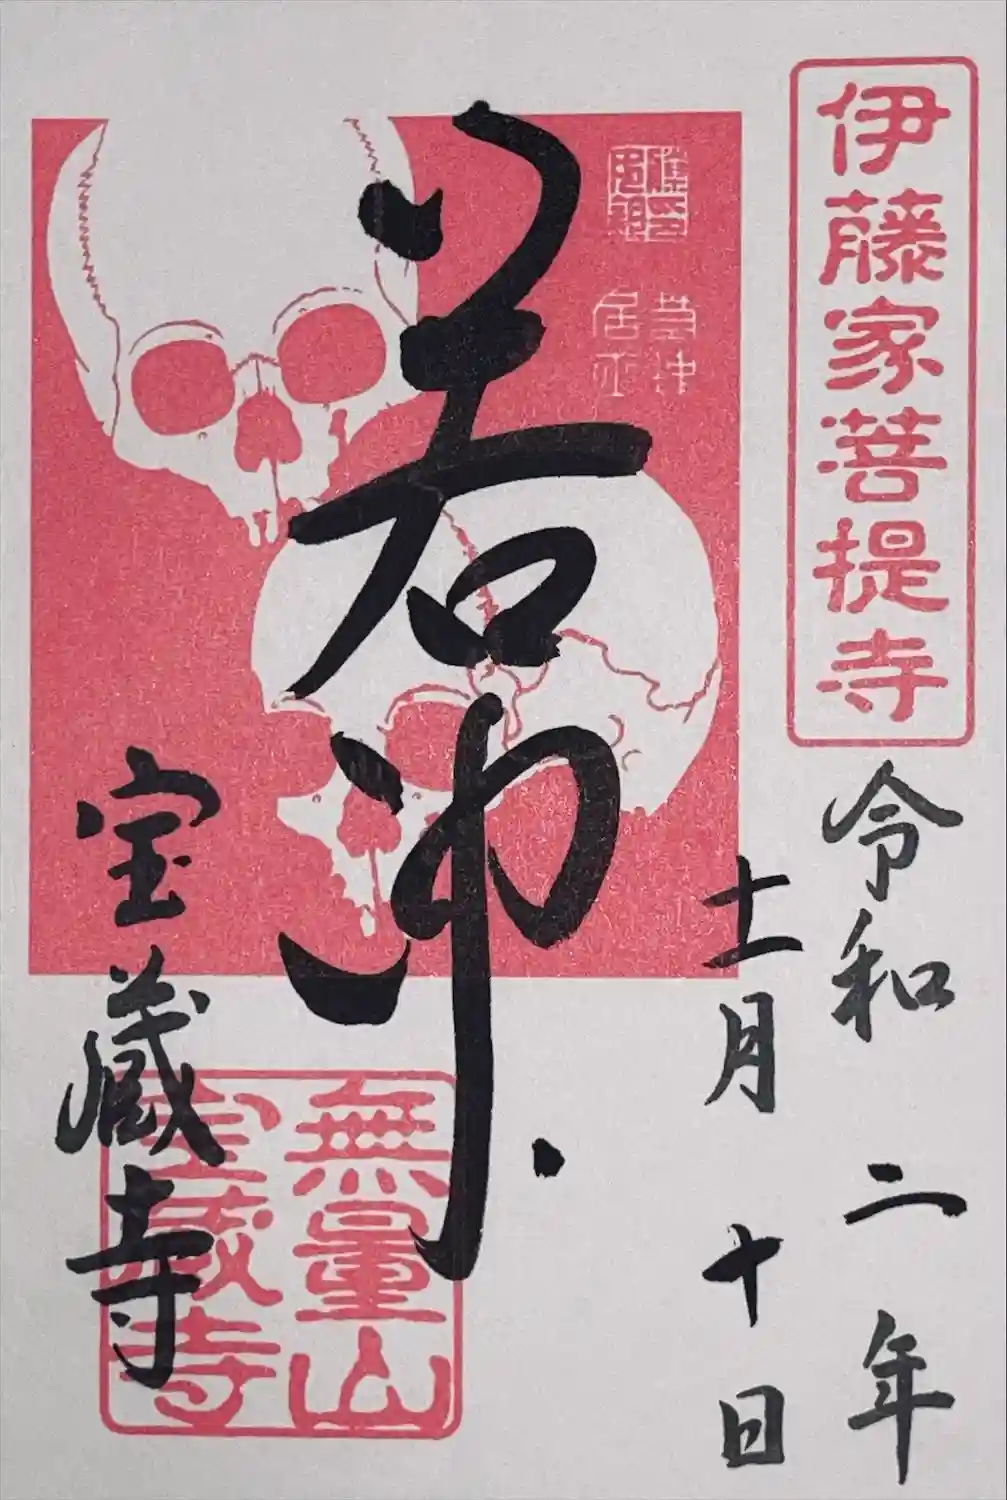 伊藤家菩提寺
令和二年
十一月十日
若冲
若冲
居士
無量山
宝蔵寺
宝蔵寺